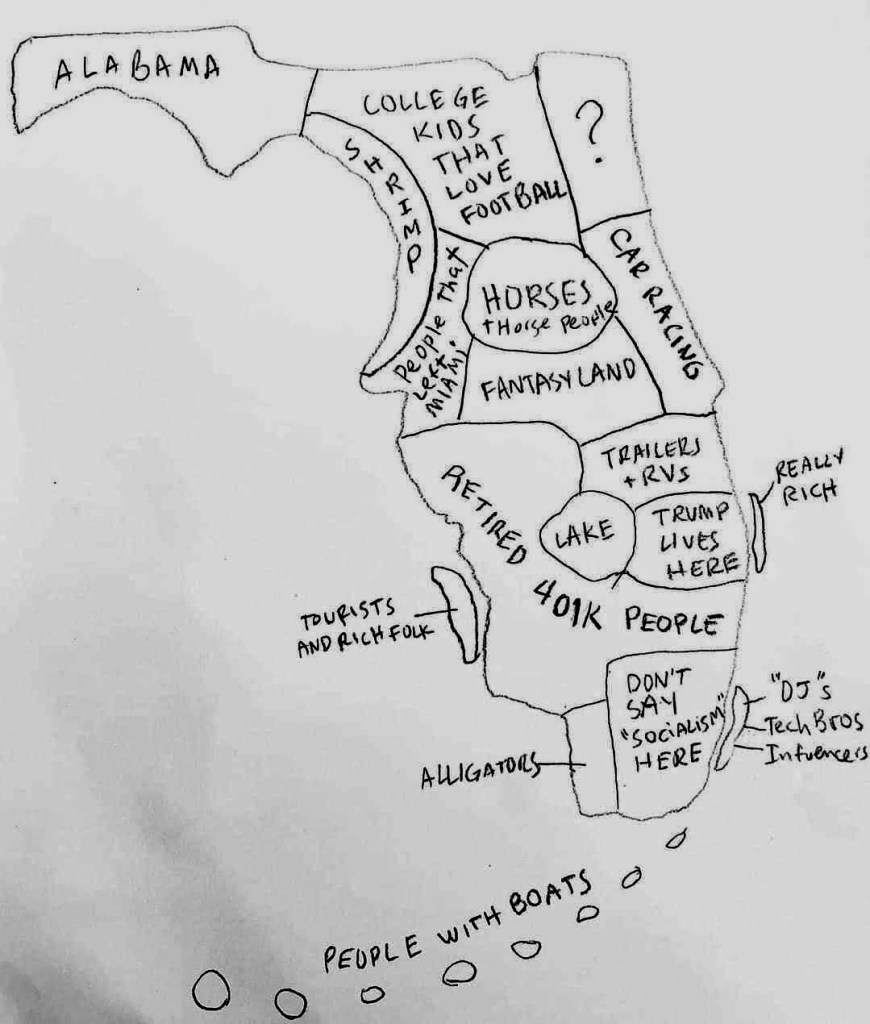 ALABAMA
COLLEGE
KIDS
THAT
LOVE
FOOTBALL
?
SHRIMP
CAR RACING
People That
Left
MIAMI
HORSES
+ Horse People
FANTASYLAND
TRAILERS
+ RVs
REALLY
RICH
RETIRED 401K PEOPLE
LAKE
TRUMP
LIVES
HERE
TOURISTS
AND RICH FOLK
DON'T
SAY
"SOCIALISM"
HERE
"DJ"s
Tech Bros
Infuencers
ALLIGATORS
PEOPLE WITH BOATS